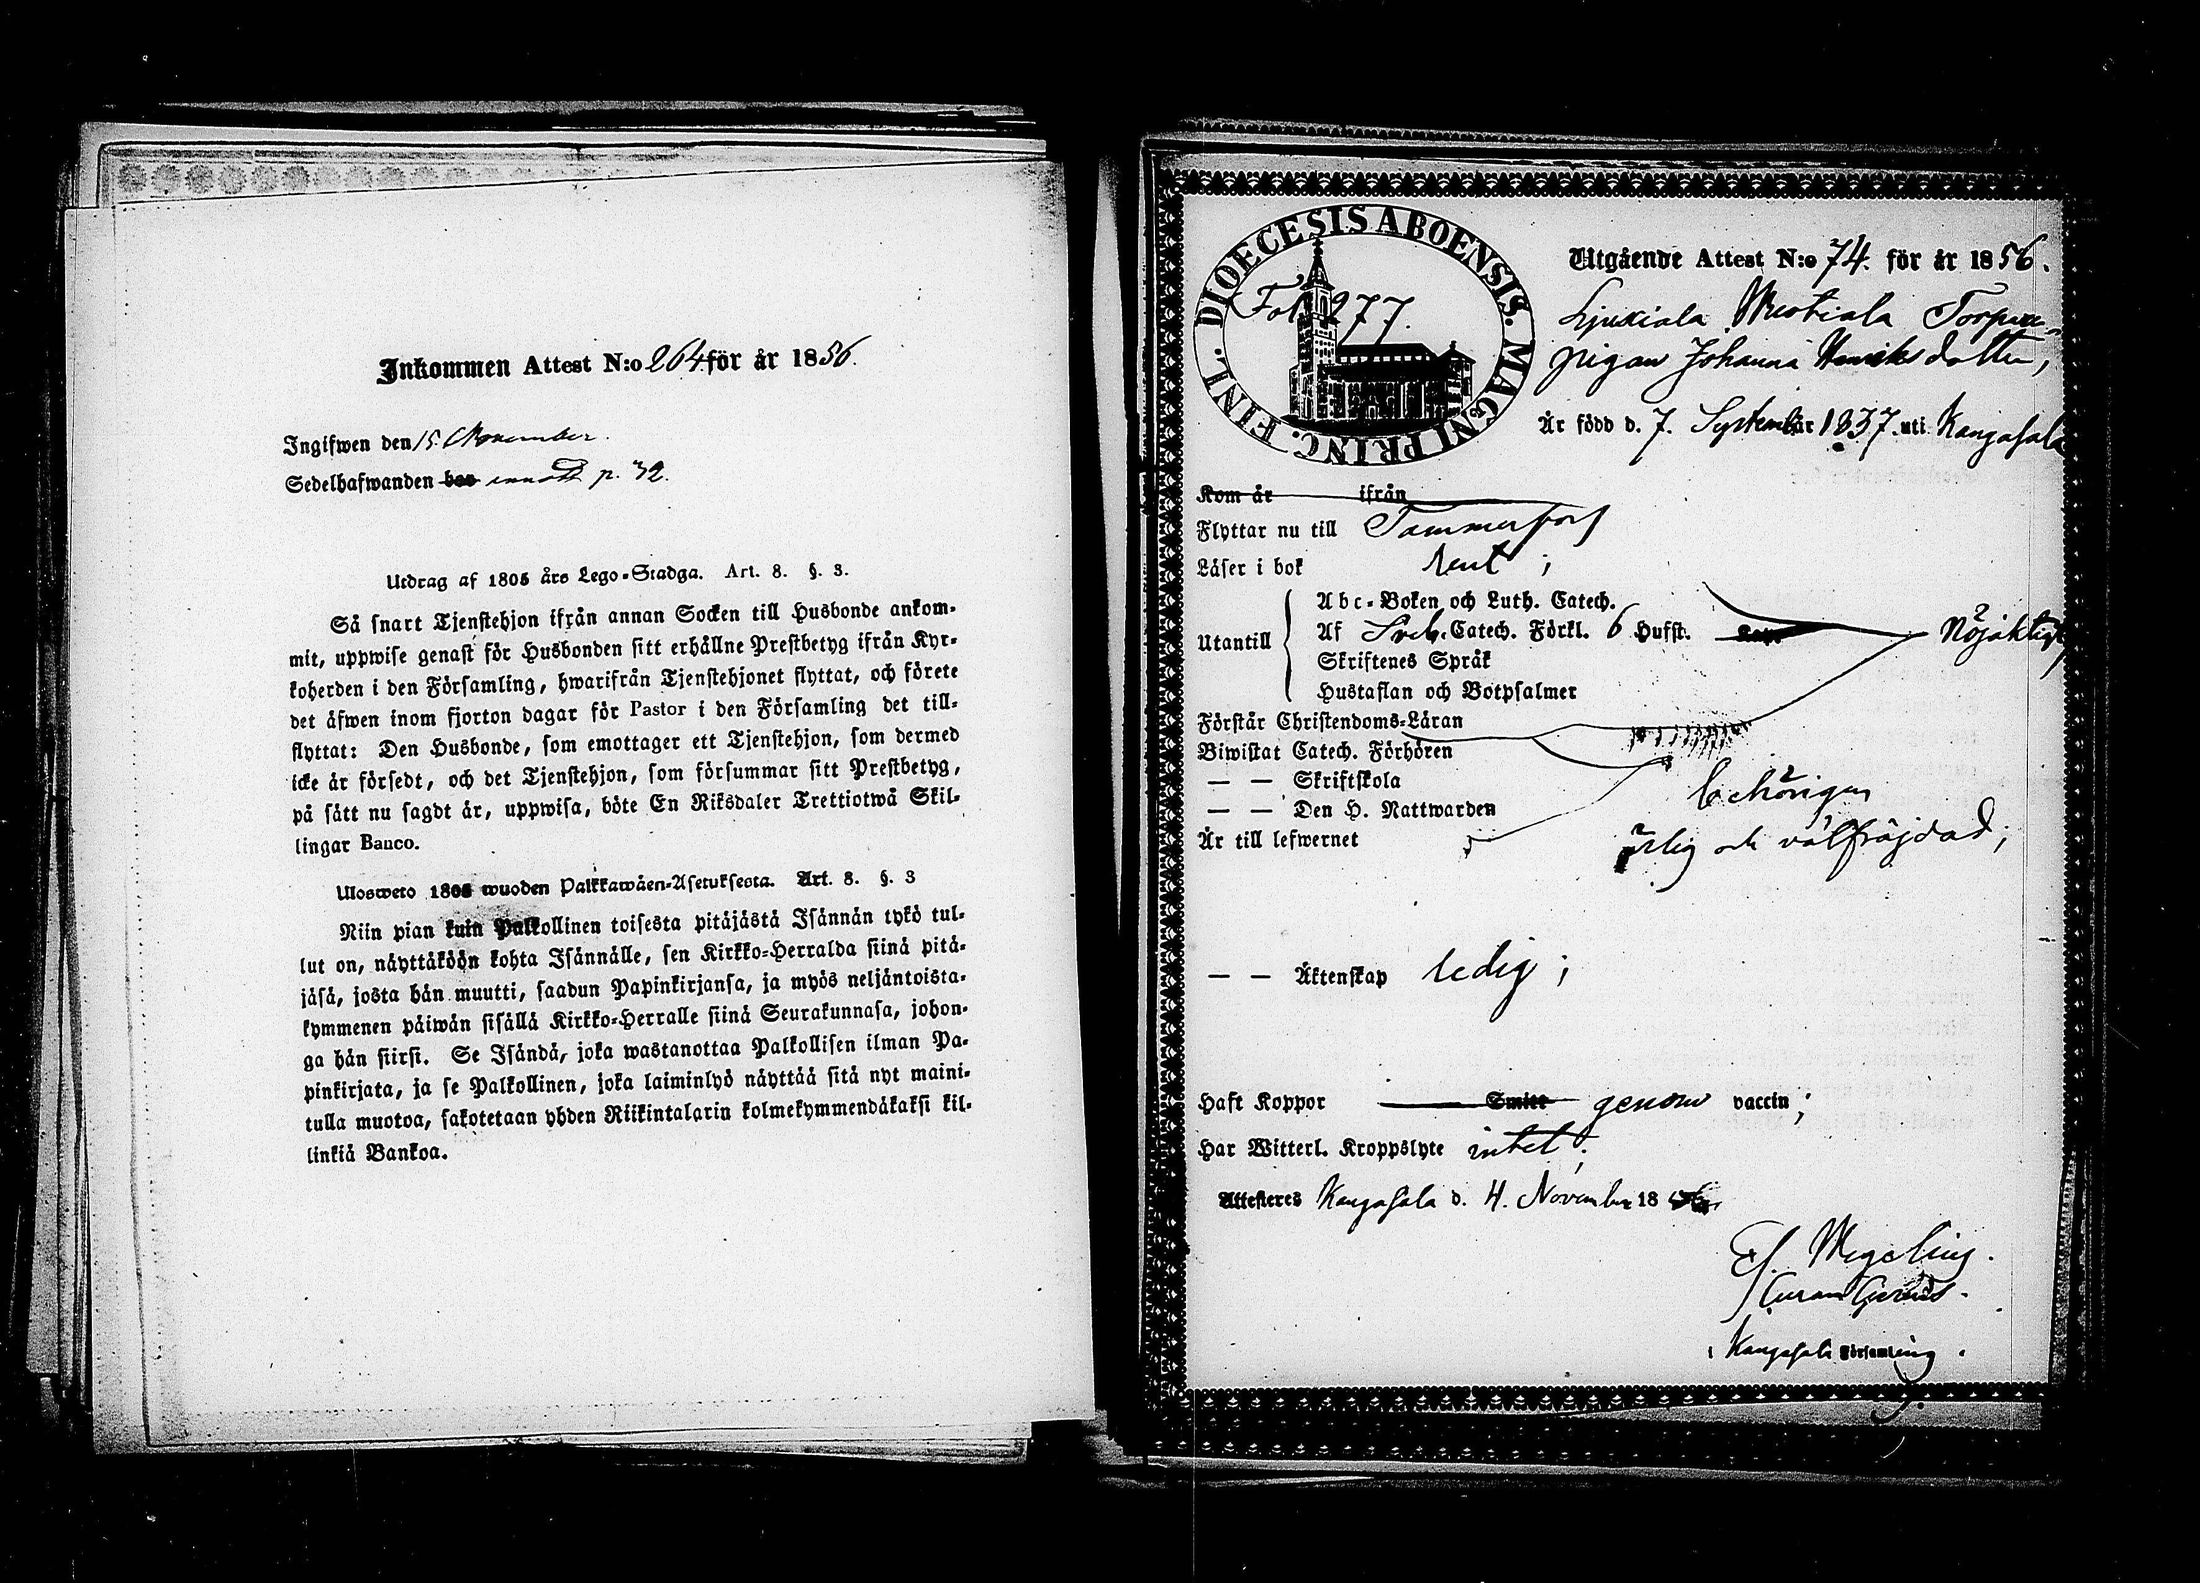 Inkommen Attest N:o 264 för år 1856.
Ingifwen den 15. November.
Sedelhafwanden bor p. 32.
Utdrag af 1805 års Lego-Stadga. Art. 8. §. 3.
Så snart Tjenstehjon ifrån annan Socken till Husbonde ankom-
mit, uppwise genast för Husbonden sitt erhållne Prestbetyg ifrån Kyr-
koherden i den Församling, hwarifrån Tjenstehjonet flyttat, och förete
det äfwen inom fjorton dagar för Pastor i den Församling det till-
flyttat: Den Husbonde, som emottager ett Tjenstehjon, som dermed
icke är försedt, och det Tjenstehjon, som försummar sitt Prestbetyg,
på sätt nu sagdt är, uppwisa, böte En Riksdaler Trettiotwå Skil-
lingar Banco.
Ulosweto 1805 wuoden Palkkawäen-Asetuksesta. Art. 8. §. 3
Niin pian kuin Palkollinen toisesta pitäjästä Isännän tykö tul-
lut on, näyttäköön kohta Isännälle, sen Kirkko-Herralda siinä pitä-
jäsä, josta hän muutti, saadun Papinkirjansa, ja myös neljäntoista-
kymmenen päiwän sisällä Kirkko-Herralle siinä Seurakunnasa, johon-
ga hän siirsi. Se Isändä, joka wastanottaa Palkollisen ilman Pa-
pinkirjata, ja se Palkollinen, joka laiminlyö näyttää sitä nyt maini-
tulla muotoa, sakotetaan yhden Riikintalarin kolmekymmendäkaksi kil-
linkiä Bankoa.
DIOECESIS ABOENSIS. MAGNI PRINC. FINL.
Fol. 277.
Utgående Attest N:o 74. för år 1856.
Ljuxiala Torpare-
pigan Johanna Henriksdotter,
Är född d. 7. September 1837. uti Kangasala
Kom år ifrån
Flyttar nu till Tammerfors
Läser i bok rent;
Utantill
Abc-Boken och Luth. Catech.
Af Sveb. Catech. Förkl. 6 Hufst. Nöjaktigt
Skriftenes Språk
Hustaflan och Botpsalmer
Förstår Christendoms-Läran
Biwistat Catech. Förhören
— — Skriftskola behörigen
— — Den H. Nattwarden
Är till lefwernet ärlig och välfräjdad;
— — Äktenskap ledig;
Haft Koppor Smitt genom vaccin;
Har Witterl. Kroppslyte intet.
Attesteres Kangasala d. 4. November 18
Ef. Wegelius.
i Kangasala Församling.